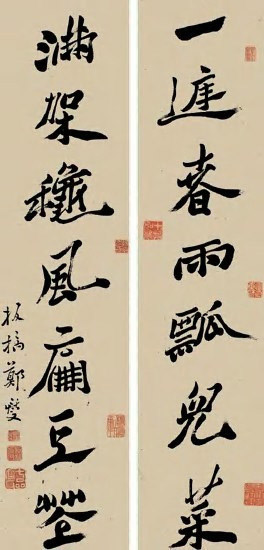 一庭春雨瓢兒菜
滿架穐風扁豆華
板橋鄭燮